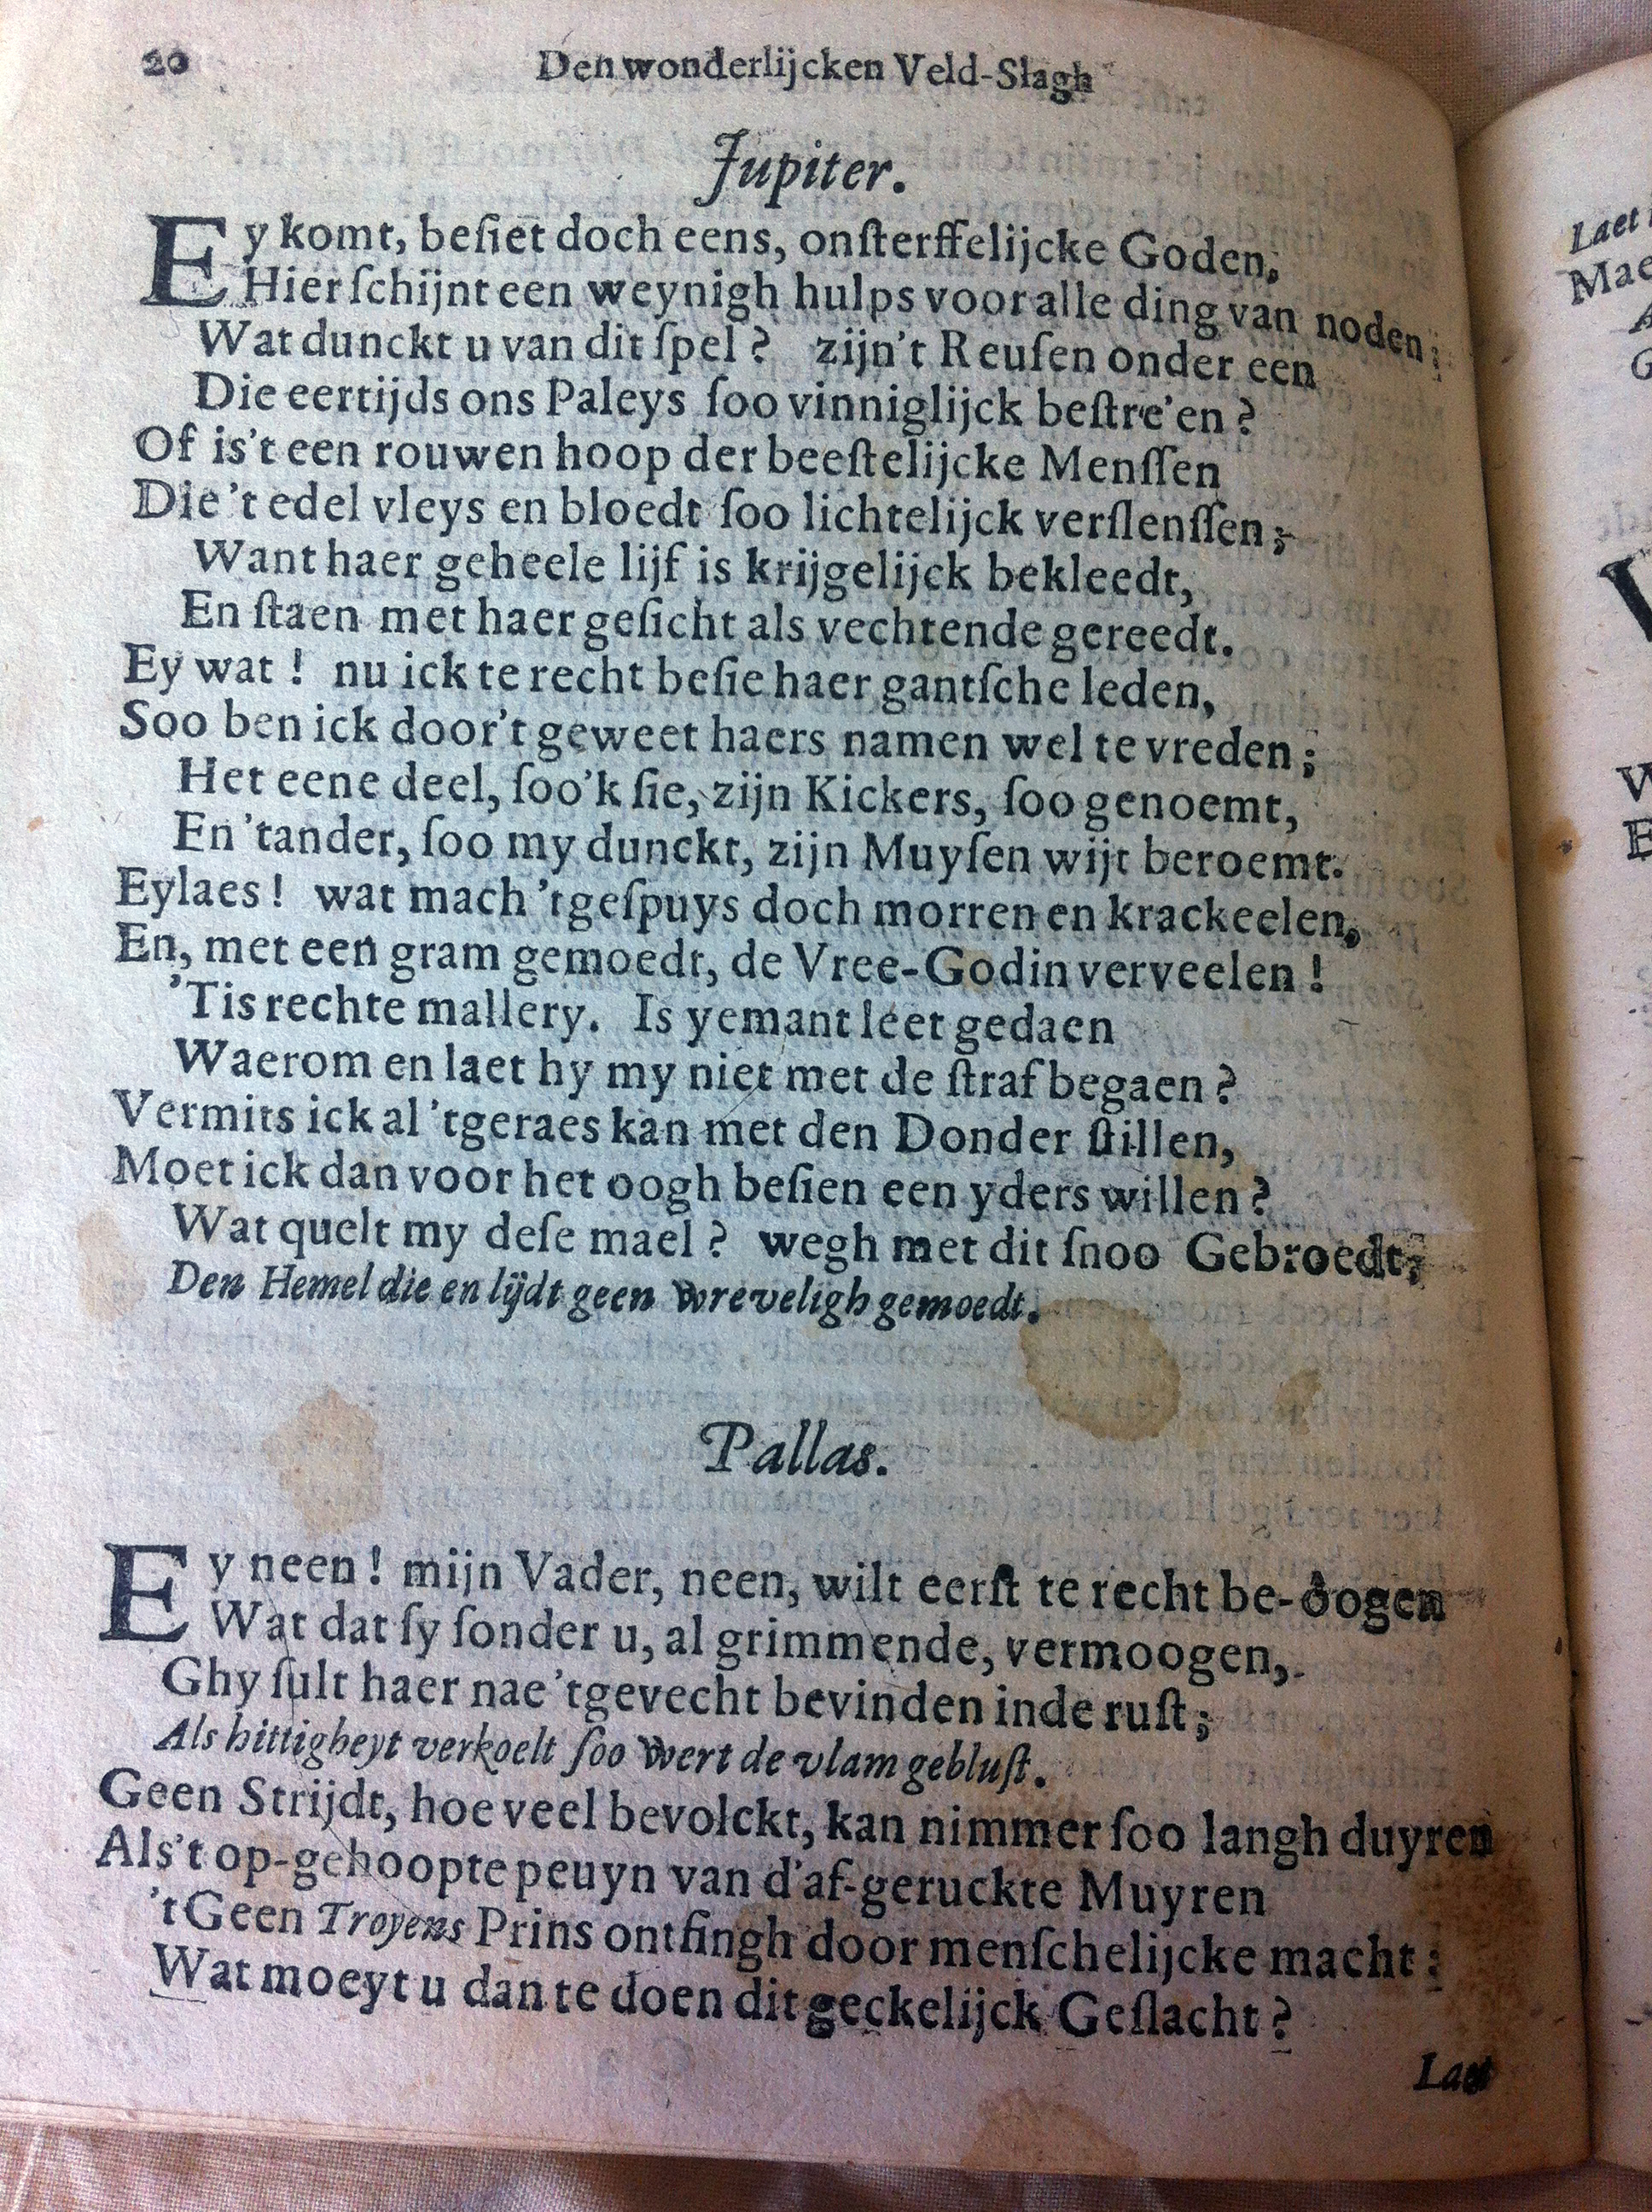 20 Den wonderlijcken Veld-Slagh
Jupiter.
Ey komt, beſiet doch eens, onſterffelijcke Goden,
Hier ſchijnt een weynigh hulps voor alle ding van noden;
Wat dunckt u van dit ſpel? zijn't Reuſen onder een
Die eertijds ons Paleys ſoo vinniglijck beſtre'en?
Of is't een rouwen hoop der beeſtelijcke Menſſen
Die 't edel vleys en bloedt ſoo lichtelijck verſlenſſen;
Want haer geheele lijf is krijgelijck bekleedt,
En ſtaen met haer geſicht als vechtende gereedt.
Ey wat! nu ick te recht beſie haer gantſche leden,
Soo ben ick door't geweet haers namen wel te vreden;
Het eene deel, ſoo'k ſie, zijn Kickers, ſoo genoemt,
En 'tander, ſoo my dunckt, zijn Muyſen wijt beroemt.
Eylaes! wat mach 'tgeſpuys doch morren en krackeelen,
En, met een gram gemoedt, de Vree-Godin verveelen!
'Tis rechte mallery. Is yemant leet gedaen
Waerom en laet hy my niet met de ſtraf begaen?
Vermits ick al 'tgeraes kan met den Donder ſtillen,
Moet ick dan voor het oogh beſien een yders willen?
Wat quelt my deſe mael? wegh met dit ſnoo Gebroedt;
Den Hemel die en lijdt geen wreveligh gemoedt.
Pallas.
Ey neen! mijn Vader, neen, wilt eerſt te recht be-oogen
Wat dat ſy ſonder u, al grimmende, vermoogen,
Ghy ſult haer nae 'tgevecht bevinden inde ruſt;
Als hittigheyt verkoelt ſoo wert de vlam gebluſt.
Geen Strijdt, hoe veel bevolckt, kan nimmer ſoo langh duyren
Als't op-gehoopte peuyn van d'af-geruckte Muyren
't Geen Troyens Prins ontfingh door menſchelijcke macht:
Wat moeyt u dan te doen dit geckelijck Geſlacht?
Laet
Laet
Mae